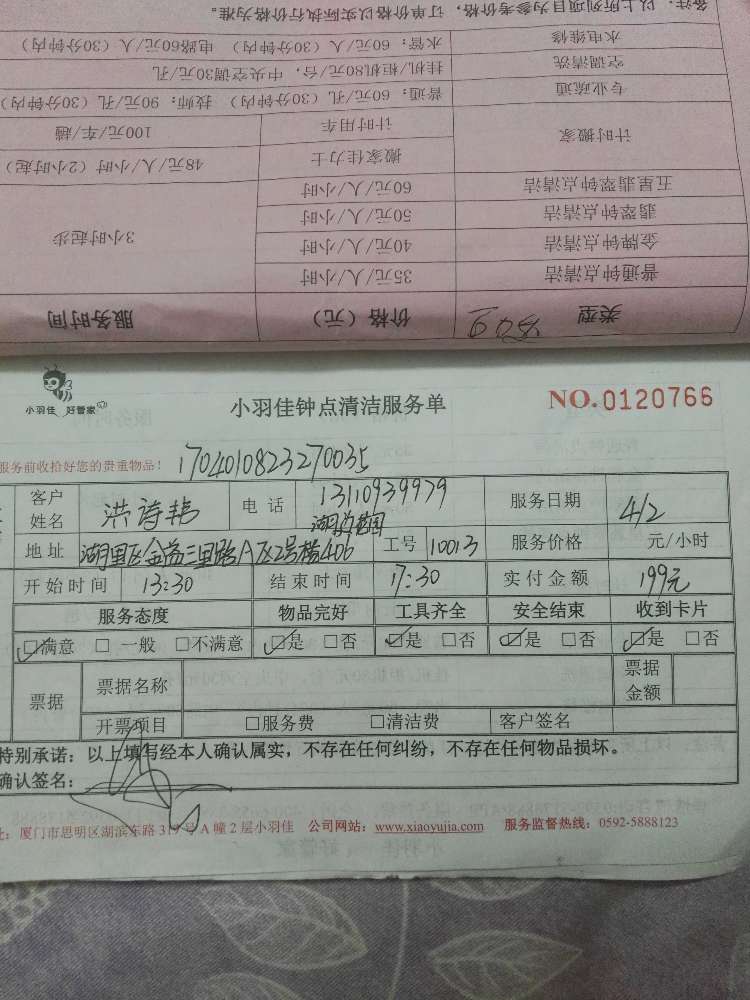 类型 价格（元） 服务时间
普通钟点清洁 35元/人/小时
金牌钟点清洁 40元/人/小时
翡翠钟点清洁 50元/人/小时
五星翡翠钟点清洁 60元/人/小时
3小时起步
计时搬家 搬家佳力士 48元/人/小时（2小时起）
计时用车 100元/车/趟
专业疏通 普通：60元/孔（30分钟内） 技师：90元/孔（30分钟内）
空调清洗 挂机/柜机80元/台，中央空调30元/孔
水电维修 水管：60元/人（30分钟内） 电路60元/人（30分钟内）
备注：以上所列项目为参考价格，订单价格以实际执行价格为准。
小羽佳 好管家
小羽佳钟点清洁服务单
NO.0120766
服务前收拾好您的贵重物品！
1704010823270035
客户姓名 洪诗艳 电话 13110939979 服务日期 4/2
地址 湖里区金益三里路A区2号楼406 工号 10013 服务价格 元/小时
开始时间 13:30 结束时间 17:30 实付金额 199元
服务态度 物品完好 工具齐全 安全结束 收到卡片
☑满意 □一般 □不满意 ☑是 □否 ☑是 □否 ☑是 □否 ☑是 □否
票据 票据名称 票据金额
开票项目 □服务费 □清洁费 客户签名
特别承诺：以上填写经本人确认属实，不存在任何纠纷，不存在任何物品损坏。
确认签名：
址：厦门市思明区湖滨东路319号A幢2层小羽佳 公司网站：www.xiaoyujia.com 服务监督热线：0592-5888123